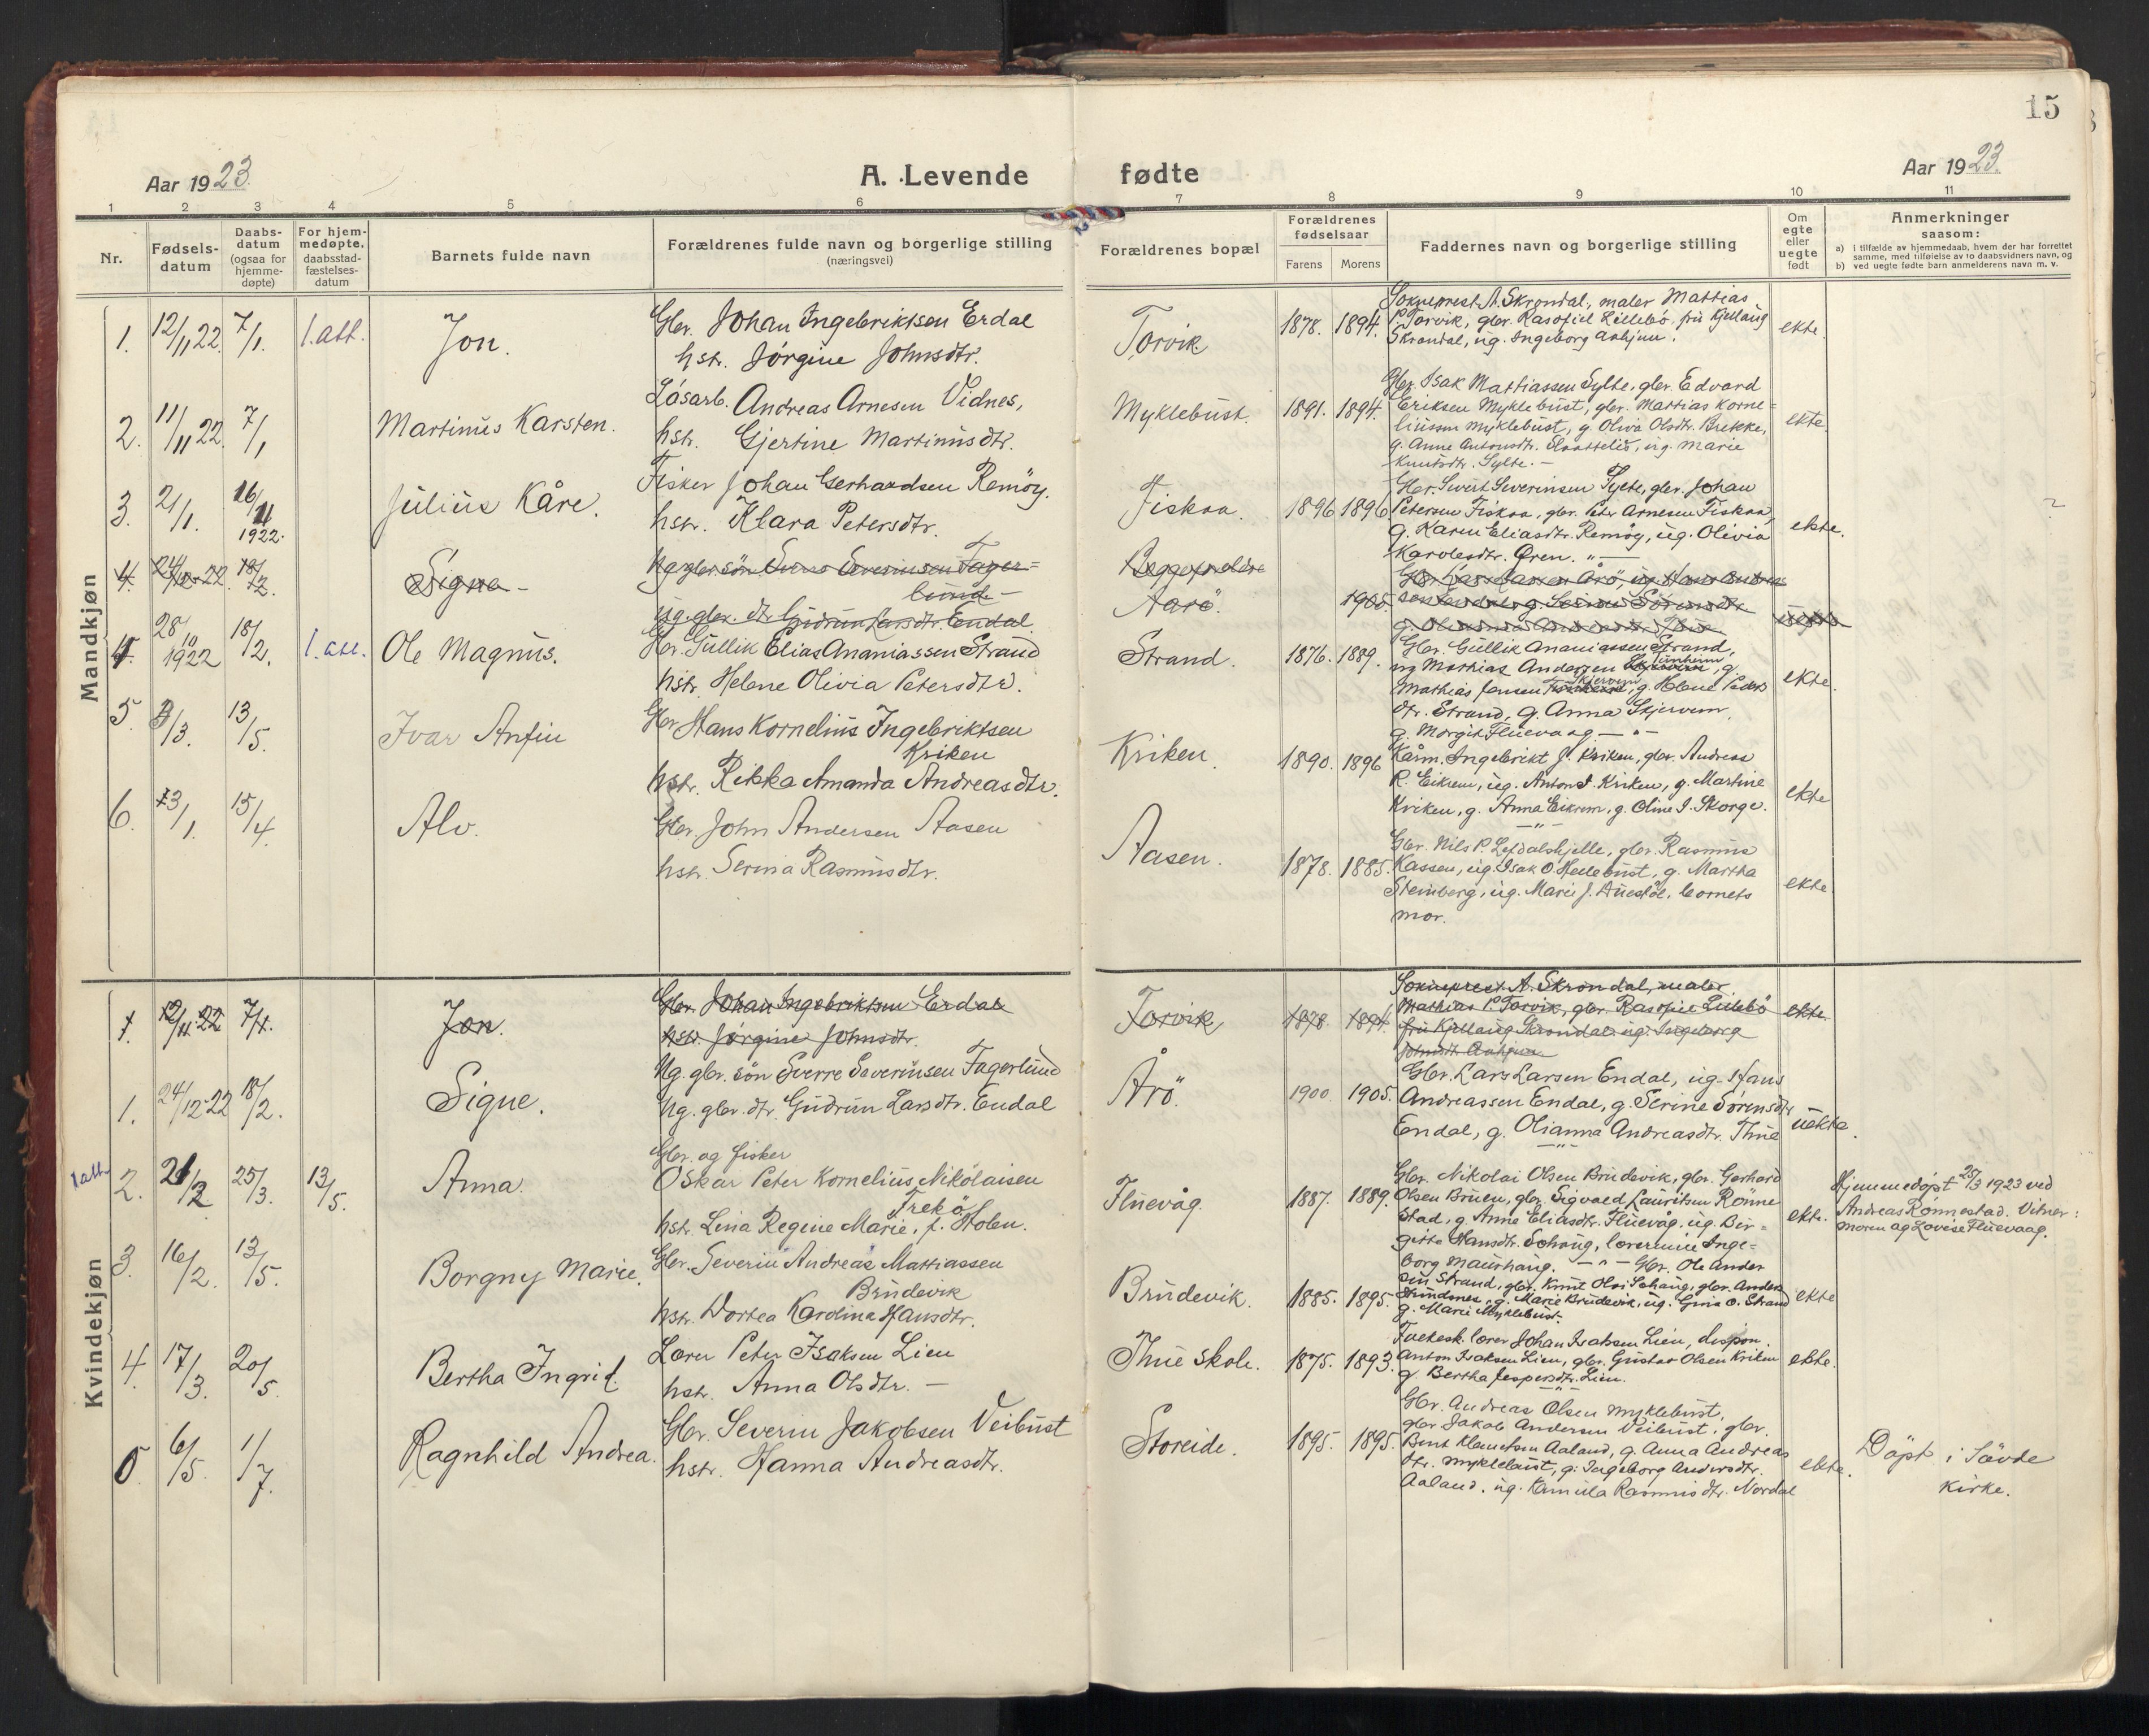 15
Aar 1923.
A. Levende fødte
Aar 1923.
1 2 3 4 5 6 7 8 9 10 11
Nr.
Fødsels-
datum
Daabs-
datum
(ogsaa for
hjemme-
døpte)
For hjem-
medøpte.
daabsstad-
fæstelses-
datum
Barnets fulde navn
Forældrenes fulde navn og borgerlige stilling
(næringsvei)
Forældrenes bopæl
Forældrenes
fødselsaar
Farens Morens
Faddernes navn og borgerlige stilling
Om
egte
eller
uegte
født
Anmerkninger
saasom:
a) i tilfælde av hjemmedaab, hvem der har forrettet
samme, med tilføielse av to daabsvidners navn, og
b) ved uegte fødte barn anmelderens navn m. v.
Mandkjøn
1. 12/11 22. 7/1. 1.att. Jon.
Gbr. Johan Ingebriktsen Erdal
hstr. Jörgine Johnsdtr.
Torvik 1878. 1894.
Sokneprest A. Skrondal, maler Mattias
P. Torvik, gbr. Rasofiel Lillebö, frú Kjellaúg
Skrondal, úg. Ingeborg Aahjem.
ekte.
2. 11/11 22. 7/1 Martinús Karsten.
Lösarb. Andreas Arnesen Vidnes,
hstr. Gjertine Martinúsdtr.
Myklebúst. 1891. 1894.
Gbr. Isak Mattiassen Sylte, gbr. Edvard
Eriksen Myklebúst, gbr. Mattias Korne=
liússen Myklebúst, g. Oliva Olsdtr. Brekke,
g. Anne Antonsdtr. Slaattelid, úg. Marie
Knútsdtr. Sylte. —
ekte.
3. 2/1. 16/11 1922. Júliús Kåre.
Fisker Johan Gerhardsen Remöy.
hstr. Klara Petersdtr.
Fiskaa. 1896 1896
Gbr. Sivert Severinsen Sylte, gbr. Johan
Petersen Fiskaa, gbr. Peter Arnesen Fiskaa,
g. Karen Eliasdtr. Remöy, úg. Olivia
Karolesdtr. Ören. "—
ekte.
?
4. 24/12-22. 18/2. Signe -
Úg. gbr. sön Sverre Severinsen Fager=
lúnd —
Úg. gbr. dtr. Gúdrún Larsdtr. Endal
Begge foreldre
Aarö. 1905.
4. 28/10 1922 18/2. 1.att. Ole Magnús.
Gbr. Gúllik Elias Ananiassen Strand
hstr. Helene Olivia Petersdtr.
Strand. 1876. 1889.
Gbr. Gúllik Ananiassen Strand,
úg Mathias Andersen Túnheim, g
Mathias Jensen Skjervem, g. Helene Peters
dtr. Strand, g. Anna Skjervem,
g. Margit Flúevaag — " —
ekte.
5. 3/3. 13/5. Ivar Anfin
Gbr. Hans Kornelius Ingebriktsen
Kriken
hstr. Rikka Amanda Andreasdtr.
Kriken. 1890. 1896
Kårm. Ingebrikt J. Kriken, gbr. Andreas
R. Eikrem, úg. Anton I. Kriken, g. Martine
Kriken, g. Anna Eikrem, g. Oline I. Skorge.
— " —
ekte
6. 13/1. 15/4. Alv.
Gbr. John Andersen Aasen
hstr. Serina Rasmúsdtr.
Aasen. 1878. 1885.
Gbr. Nils P. Lefdalshjelle, gbr. Rasmús
Kassen, úg. Isak O. Hellebúst, g. Martha
Steinberg, úg. Marie J. Aúestöl, bornets
mor.
ekte.
Kvindekjøn
1. 12/11-22 7/1. Jon.
Gbr. Johan Ingebriktsen Erdal
hstr. Jörgine Johnsdtr.
Torvik 1878. 1894.
Sokneprest A. Skrondal, maler
Mathias P. Torvik, gbr. Rasofiel Lillebö
frú Kjellaúg Skrondal. úg. Ingeborg
Johnsdtr. Aahjem
ekte.
1. 24/12-22 18/2. Signe.
Úg. gbr. sön Sverre Severinsen Fagerlúnd
Úg. gbr. dtr. Gúdrún Larsdtr. Endal
Årö. 1900 1905.
Gbr. Lars Larsen Endal, úg. Hans
Andreassen Endal, g. Serine Sörensdtr.
Endal, g. Olianna Andreasdtr. Thúe
— " —
úekte.
1att. 2. 21/2 25/3. 13/5. Anna.
Gbr. og fisker
Oskar Peter Kornelius Nikolaisen
Frekö
hstr. Lina Regine Marie, f. Holen.
Flúevåg. 1887. 1889.
Gbr. Nikolai Olsen Brúdevik, gbr. Gerhard
Olsen Brúen, gbr. Sigvald Lauritsen Rönne
stad, g. Anne Eliasdtr. Flúevåg. úg. Bir=
gitte Hansdtr. Schaúg, lærerinne Inge=
borg Maúrhaúg. — " —
ekte.
Hjemmedöpt 25/3 1923 ved
Andreas Rönnestad. Vitner:
moren og Lovise Flúevaag.
3. 16/2. 13/5. Borgny Marie.
Gbr. Severin Andreas Mattiassen
Brúdevik
hstr. Dortea Kardina Hansdtr.
Brúdevik. 1885. 1895.
Gbr. Ole Ander
sen Strand, gbr. Knút Olai Schaúg, gbr. Anders
Strindmes, g. Marie Brúdevik, úg. Gina O. Strand
g. Marie Myklebúst.
ekte
4. 17/3. 20/5. Bertha Ingrid.
Lærer Peter Isaksen Lien
hstr. Anna Olsdtr. —
Thúe skole. 1875. 1893.
Folkesk. lærer Johan Isaksen Lien, dispon.
Anton Isaksen Lien, gbr. Gústav Olsen Kriken
g. Bertha Jespersdtr. Lien.
— " —
ekte.
5. 6/5. 1/7. Ragnhild Andrea.
Gbr. Severin Jakobsen Veibúst
hstr. Hanna Andreasdtr.
Storeide. 1895. 1895.
Gbr. Andreas Olsen Myklebúst,
gbr. Jakob Andersen Veibúst, gbr.
Bent Klemetsen Aaland, g. Anna Andreas
dtr. Myklebúst, g. Ingeborg Andersdtr.
Aaland, úg. Kamilla Rasmúsdtr. Nordal
ekte.
Döpt i Sövde
kirke.